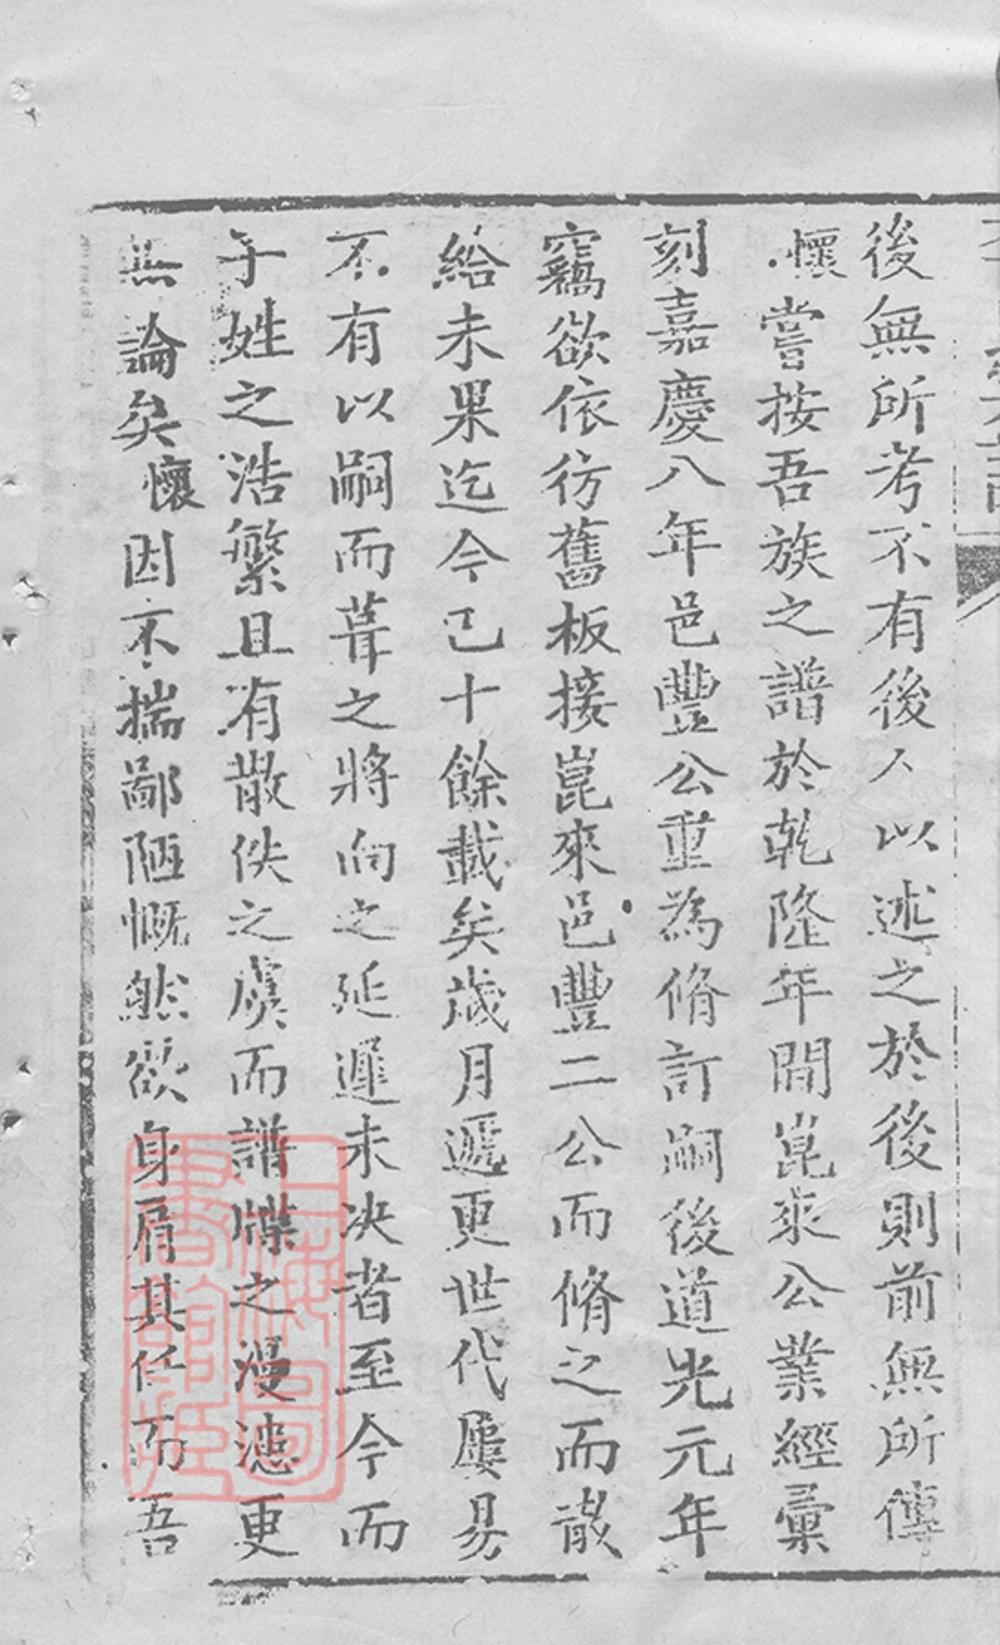 後無所考不有後人以述之於後則前無所傳
懷嘗按吾族之譜於乾隆年間崑來公業經彙
刻嘉慶八年邑豐公重為脩訂嗣後道光元年
竊欲依彷舊板接崑來邑豐二公而脩之而嵗
給未果迄今已十餘載矣歲月遞更世代屢易
不有以嗣而葺之將向之延遲未决者至今而
子姓之浩繁且有散佚之虞而譜牒之漫漶更
無論矣懷因不揣鄙陋慨然欲身肩其任而吾
上海圖書館藏